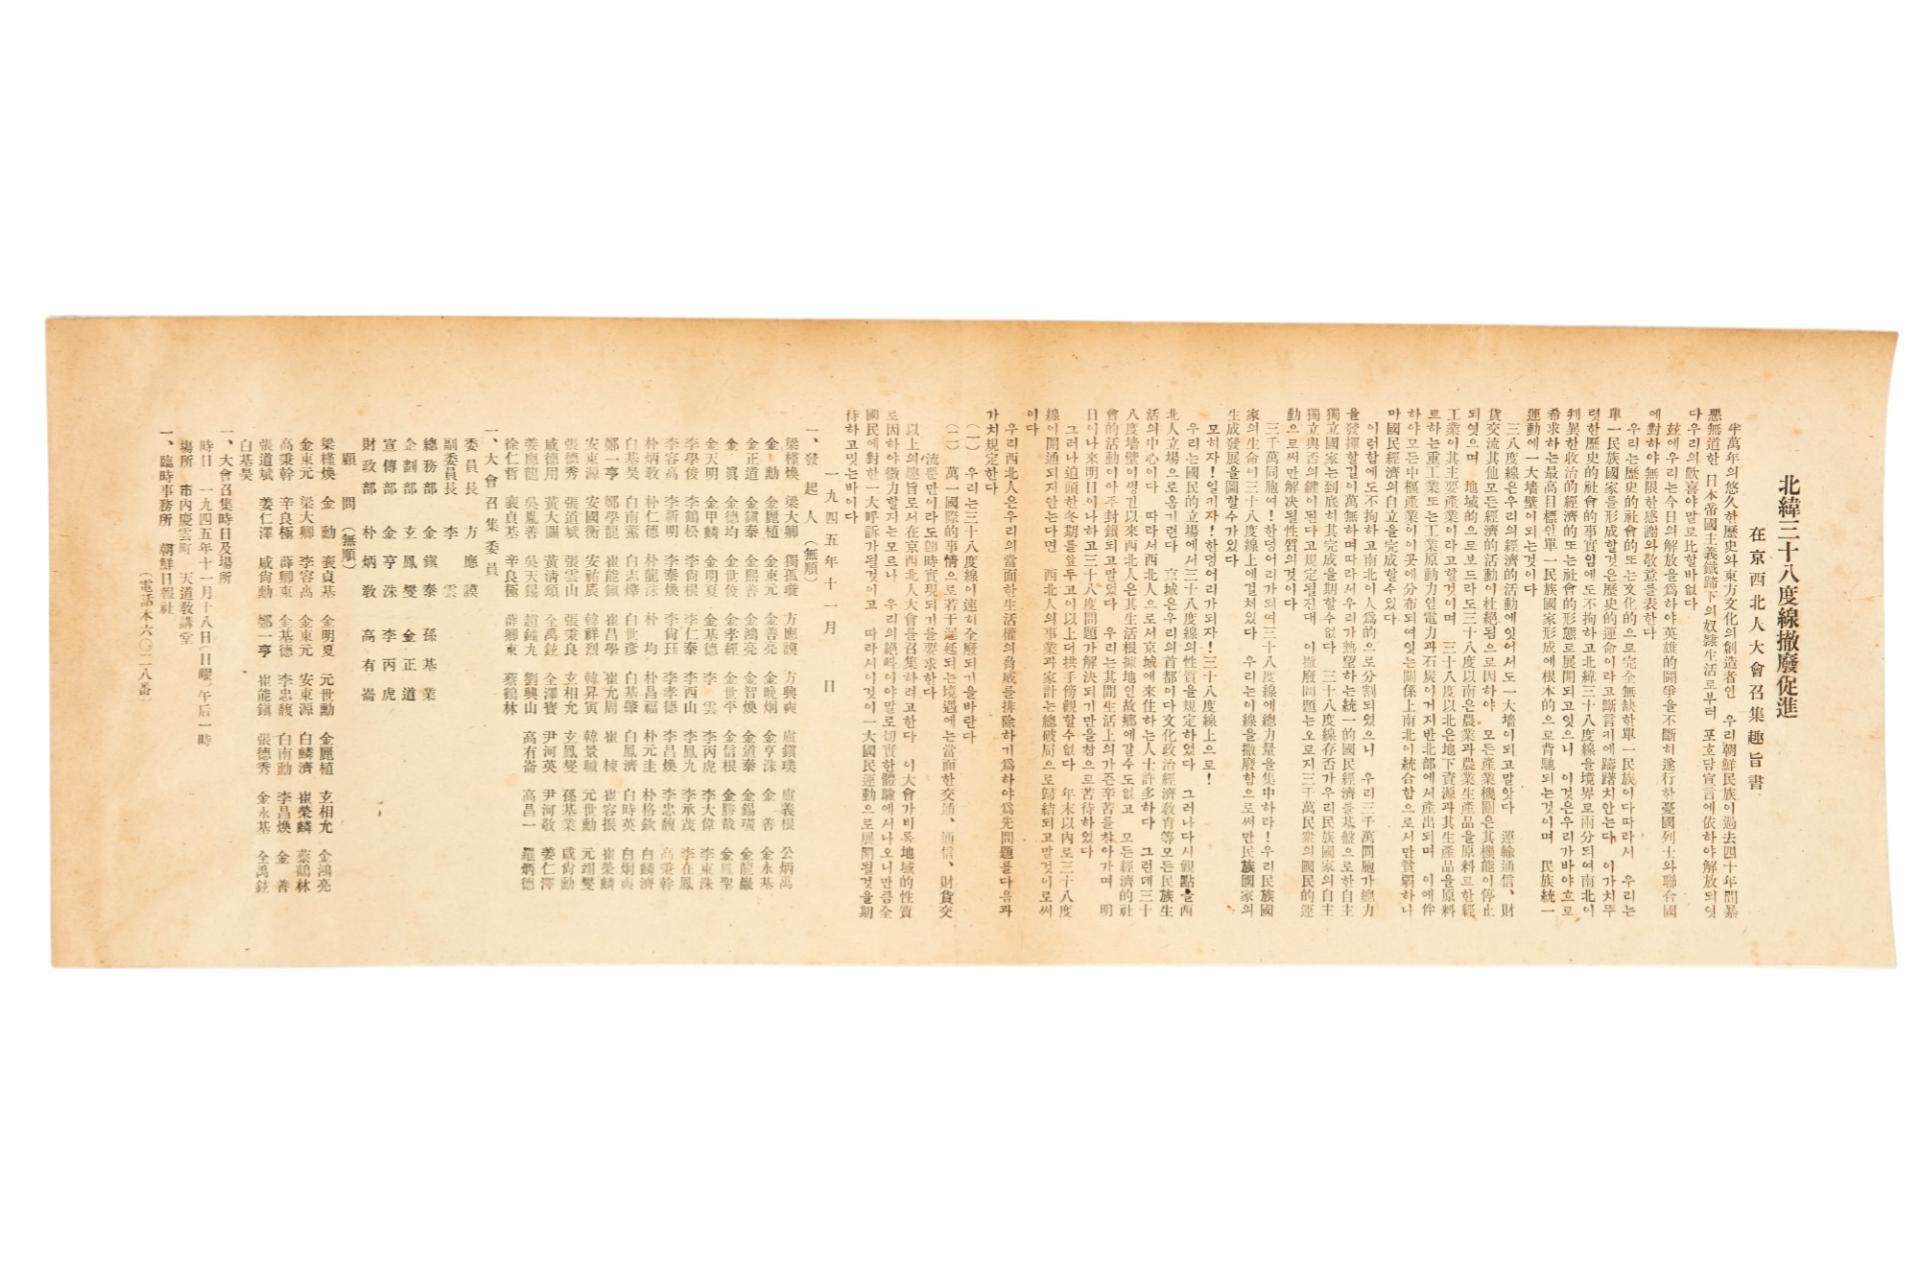 北緯三十八度線撤廢促進
在京西北人大會召集趣旨書
半萬年의悠久한歷史와東方文化의創造者인 우리朝鮮民族이過去四十年間暴
惡無道한 日本帝國主義鐵蹄下의奴隸生活로부터 포호담宣言에依하야解放되엿
다우리의歡喜야말로比할바없다
玆에우리는今日의解放을爲하야英雄的鬪爭을不斷히遂行한憂國列士와聯合國
에對하야無限한感謝와敬意를表한다
우리는歷史的社會的또는文化的으로完全無缺한單一民族이다따라서 우리는
單一民族國家를形成할것은歷史的運命이라고斷言키에躊躇치안는다 이가치뚜
렷한歷史的社會的事實임에도不拘하고北緯三十八度線을境界로兩分되여南北이
判異한政治的經濟的또는社會的形態로展開되고잇으니 이것은우리가바야흐로
希求하는最高目標인單一民族國家形成에根本的으로背馳되는것이며 民族統一
運動에一大墻壁이되는것이다
三八度線은우리의經濟的活動에잇어서도一大墻이되고말앗다 運輸通信、財
貨交流其他모든經濟的活動이杜絕됨으로因하야 모든產業機關은其機能이停止
되엿으며 地域的으로보드라도三十八度以南은農業과農業生產品을原料로한輕
工業이其主要產業이라고할것이며 三十八度以北은地下資源과其生產品을原料
로하는重工業또는工業原動力인電力과石炭이거지반北部에서產出되며 이에伴
하야모든中樞產業이이곳에分布되여잇는關係上南北이統合함으로서만貧弱하나
마國民經濟의自立을完成할수있다
이럼함에도不拘하고南北이人爲的으로分割되었으니 우리三千萬同胞가總力
을發揮할길이萬無하며따라서우리가熱望하는統一的國民經濟를基盤으로한自主
獨立國家는到底히其完成을期할수없다 三十八度線存否가우리民族國家의自主
獨立與否의鍵이된다고規定될진대 이撤廢問題는오로지三千萬民衆의國民的運
動으로써만解決될性質의것이다
三千萬同胞여!한덩어리가되여三十八度線에總力量을集中하라!우리民族國
家의生命이三十八度線上에걸처있다 우리는이線을撤廢함으로써만民族國家의
生成發展을圖할수가있다
모히자!일키자!한덩어리가되자!三十八度線上으로!
우리는國民的立場에서三十八度線의性質을規定하였다 그러나다시觀點을西
北人立場으로옴기련다 京城은우리의首都이다文化政治經濟敎育等모든民族生
活의中心이다 따라서西北人으로서京城에來住하는人士許多하다 그런데三十
八度墻壁이생긴以來西北人은其生活根據地인故鄕에갈수도없고 모든經濟的社
會的活動이아주封鎖되고말었다 우리는其間生活上의가즌辛苦를참아가며 明
日이나來明日이나하고三十八度問題가解決되기만을참으로苦待하였다
그러나迫頭한冬期를앞두고이以上더拱手傍觀할수없다 年末以內로三十八度
線이開通되지안는다면 西北人의事業과家計는總破局으로歸結되고말것이로써
이다
우리西北人은우리의當面한生活權의脅威를排除하기爲하야爲先問題를다음과
가치規定한다
(一) 우리는三十八度線이速히全廢되기을바란다
(二) 萬一國際的事情으로若干遲延되는境遇에는當面한交通、通信、財貨交
流뿐만이라도卽時實現되기를要求한다
以上의趣旨로서在京西北人大會를召集하려고한다 이大會가비록地域的性質
로因하야微力할지는모르나 우리의絕叫이야말로切實한體驗에서나오니만큼全
國民에對한一大呼訴가될것이고 따라서이것이一大國民運動으로展開될것을期
待하고밋는바이다
一九四五年十一月 日
一、發起人(無順)
梁槿煥 梁大卿 獨孤璇 方應謨 方興奭 盧鎭璞 盧義根 公炳禹
金勳 金麗植 金東元 金善亮 金曉炯 金亨洙 金善 金永基
金正道 金鎭泰 金熙善 金鴻亮 金智煥 金道泰 金錫璜 金龍巖
金眞 金德均 金世俊 金孝經 金世平 金信根 金勝哉 金鳳聖
金天明 金甲麟 金明夏 金基德 李雲 李丙虎 李大偉 李東洙
李學俊 李鶴松 李尙根 李仁泰 李西山 李鳳九 李承茂 李在鳳
李容高 李新明 李泰煥 李尙珏 李孝德 李昌煥 李忠馥 高秉幹
朴炳敎 朴仁德 朴龍洙 朴均 朴昌福 朴元圭 朴格欽 白麟濟
白基昊 白南薰 白志燁 白世彥 白基肇 白鳳濟 白時英 白炯奭
鄭一亨 鄭學龍 崔能鎭 崔昌學 崔允周 崔棟 崔容振 崔榮麟
安東源 安國衡 安祐辰 韓祥烈 韓昇寅 韓景職 元世勳 元翊燮
張德秀 張道斌 張雲山 張秉良 玄相允 玄鳳燮 孫基業 咸尙勳
咸德用 黃大闢 黃清頌 全萬鉉 全澤寶 尹河英 尹河敬 姜仁澤
姜應龍 吳鳳善 吳天錫 趙鍾九 劉興山 高有崙 高昌一 羅炳德
徐仁哲 裵貞基 辛良極 薛卿東 蔡鶴林
一、大會召集委員
委員長 方應謨
副委員長 李雲
總務部 金鎭泰 孫基業
企劃部 玄鳳燮 金正道
宣傳部 金亨洙 李丙虎
財政部 朴炳敎 高有崙
顧問(無順)
梁槿煥 金勳 裵貞基 金明夏 元世勳 金麗植 玄相允 金鴻亮
金東元 梁大卿 李容高 金東元 安東源 白麟濟 崔榮麟 蔡鶴林
高秉幹 辛良極 薛卿東 金基德 李忠馥 白南勳 李昌煥 金善
張道斌 姜仁澤 咸尙勳 鄭一亨 崔能鎭 張德秀 金永基 全禹鉉
白基昊
一、大會召集時日及場所
時日 一九四五年十一月十八日(日曜)午后一時
場所 市內慶雲町 天道敎講堂
一、臨時事務所 朝鮮日報社
(電話本六〇二八番)